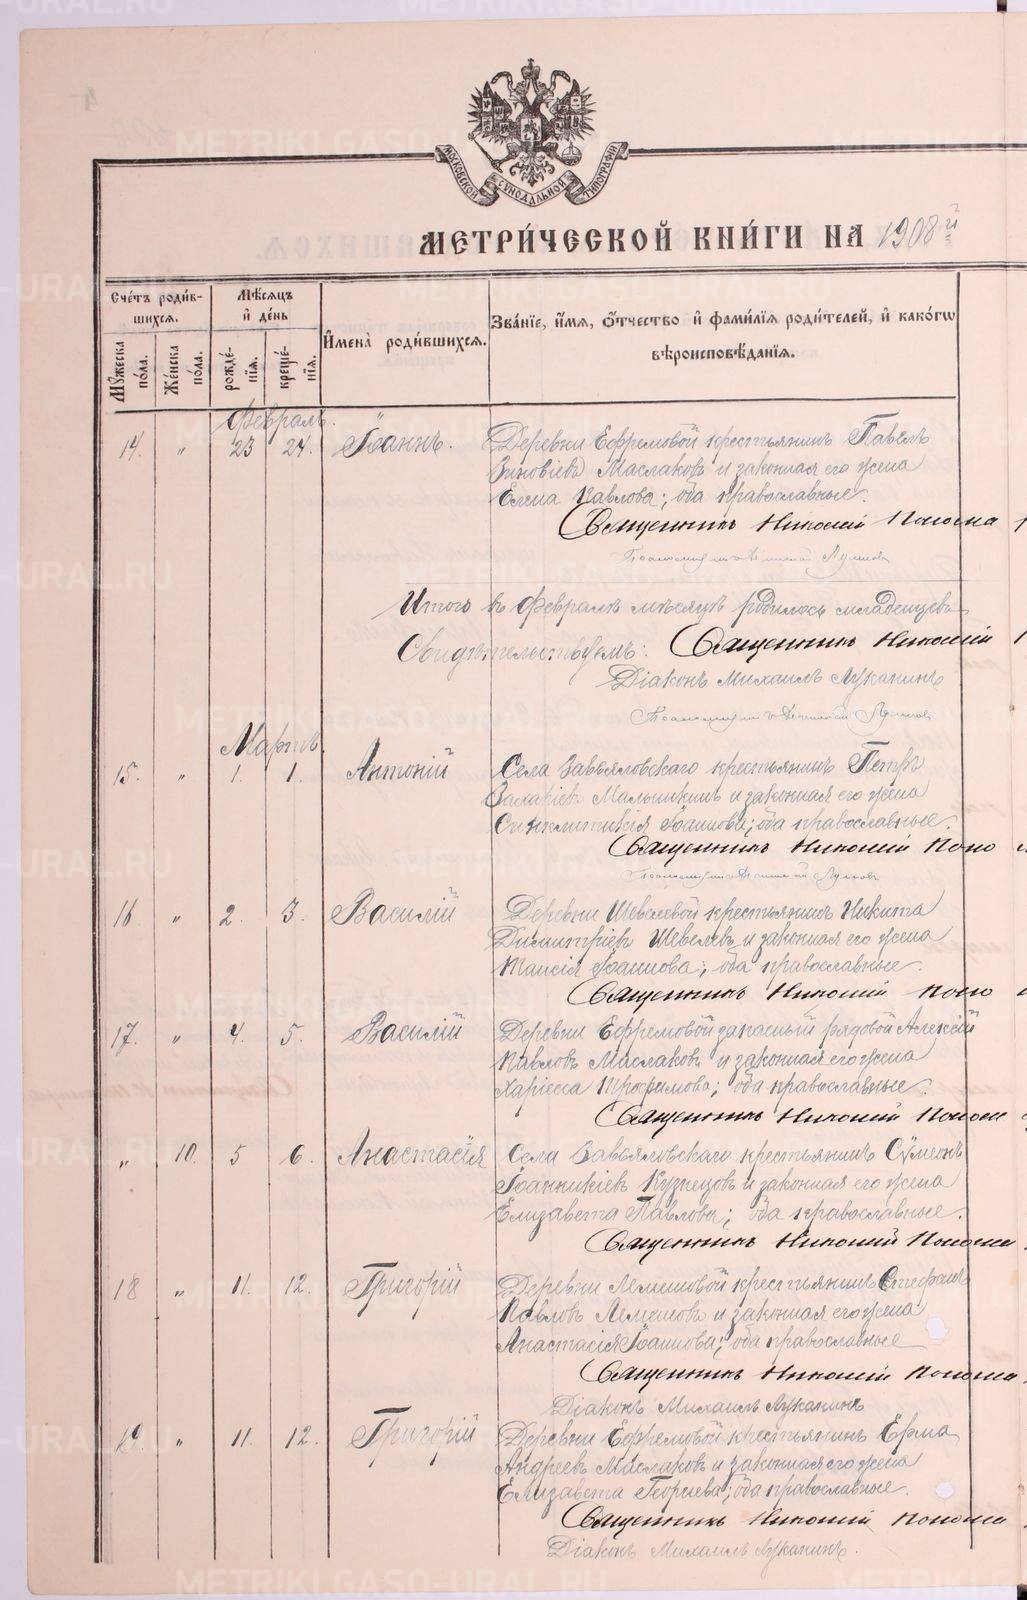 МОСКОВСКОЙ СѴНОДАЛЬНОЙ ТИПОГРАФІИ
МЕТРИ́ЧЕСКОЙ КНИ́ГИ НА 1908й
Счéтъ роди́в-
шихся.
Мѣ́сяцъ
и҆ дéнь
И҆менà роди́вшихся.
Звáнїе, и҆́мя, ѻ҆́тчество и҆ фами́лїя роди́телей, и҆ какóгѡ
вѣроисповѣ́данїя.
Мꙋ́жеска пóла.
Жéнска пóла.
рождé-
нїя.
крещé-
нїя.
Февраль.
14. " 23 24. Іоаннъ. Деревни Ефремовой крестьянинъ Павелъ
Зиновіевъ Маслаковъ и законная его жена
Елена Павлова; оба православные.
Священникъ Николай
Итого въ Февралѣ мѣсяцѣ родилось младенцевъ
Свидѣтельствуемъ: Священникъ Николай
Діаконъ Михаилъ Луканинъ
Мартъ.
15. " 1. 1. Антоній Села Завьяловскаго крестьянинъ Петръ
Захаріевъ Малышкинъ и законная его жена
Синклитикія Іоаннова; оба православные.
Священникъ Николай
16 " 2. 3. Василій Деревни Шевелевой крестьянинъ Никита
Димитріевъ Шевелевъ и законная его жена
Таисія Іоаннова; оба православные.
Священникъ Николай
17. " 4. 5. Василій Деревни Ефремовой запасный рядовой Алексій
Павловъ Маслаковъ и законная его жена
Хариесса Трофимова; оба православные.
Священникъ Николай
" 10. 5 6. Анастасія Села Завьяловскаго крестьянинъ Сѵмеонъ
Іоанникіевъ Кузнецовъ и законная его жена
Елизавета Павлова; оба православные.
Священникъ Николай
18 " 11. 12. Григорій Деревни Лемешовой крестьянинъ Стефанъ
Павловъ Лемешовъ и законная его жена
Анастасія Іоаннова; оба православные
Священникъ Николай
Діаконъ Михаилъ Луканинъ
19. " 11. 12. Григорій Деревни Ефремовой крестьянинъ Ерма
Андреевъ Маслаковъ и законная его жена
Елизавета Георгіева; оба православные.
Священникъ Николай
Діаконъ Михаилъ Луканинъ.
METRIKI.GASO-URAL.RU